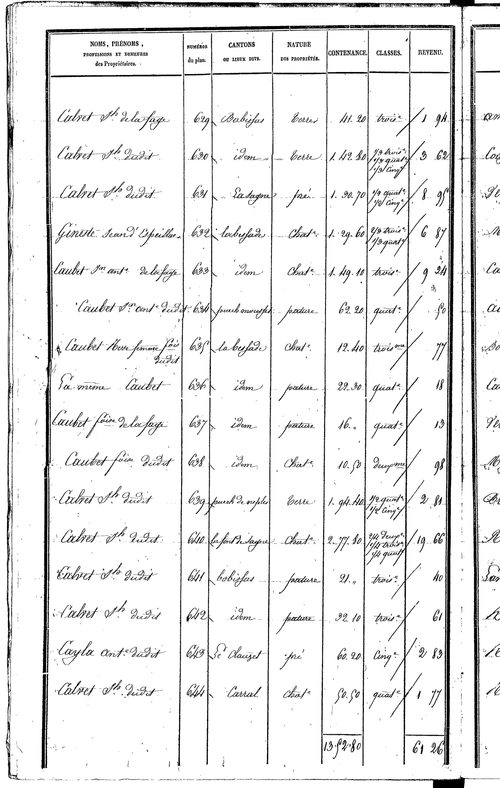 NOMS, PRÉNOMS, PROFESSIONS ET DEMEURES des Propriétaires. NUMÉROS du plan. CANTONS OU LIEUX DITS. NATURE DES PROPRIÉTÉS. CONTENANCE. CLASSES. REVENU.
Calvet Jh de la fage 629 Babissas Terre 41. 20 trois.e 1 94
Calvet Jh dudit 630 idem Terre 1. 42. 80 1/3 trois.e 1/3 quat.e 1/3 cinq.e 3 62
Calvet Jh dudit 631 La sagne pré 1. 30. 70 1/2 quat.e 1/2 cinq.e 8 95
Géneste Jean d'Espeillac 632 la besfade Chat.e 1. 29. 60 2/3 trois.e 1/3 quat.e 6 87
Caubet ant.e de la fage 633 idem Chat.e 1. 49. 10 trois.e 9 24
Caubet ant.e dudit 634 pature 62. 20 quat.e 50
Caubet femme dudit 635 la besfade Chat.e 12. 40 troisme 77
La même Caubet 636 idem pature 22. 30 quat.e 18
Caubet fois de la fage 637 idem pature 16. " quat.e 13
Caubet fois dudit 638 idem Chat.e 10. 50 deuxme 98
Calvet Jh dudit 639 puech de Terre 1. 94. 40 1/2 quat.e 1/2 cinq.e 2 81
Calvet Jh dudit 640 la font de sagne Chat.e 2. 77. 80 2/4 deux.e 1/4 trois.e 1/4 quat.e 19 66
Calvet Jh dudit 641 bobissas pature 21. " trois.e 40
Calvet Jh dudit 642 idem pature 32. 10 trois.e 61
Cayla ant.e dudit 643 Le Clauzet pré 60. 20 Cinq.e 2 83
Calvet Jh dudit 644 Carral Chat.e 50. 50 quat.e 1 77
13. 52. 80 61 26